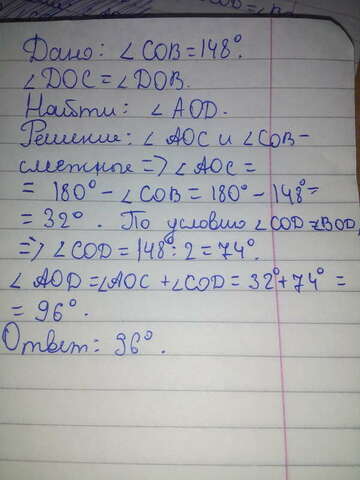 Дано: ∠COB = 148°.
∠DOC = ∠DOB.
Найти: ∠AOD.
Решение: ∠AOC и ∠COB –
смежные => ∠AOC =
= 180° - ∠COB = 180° - 148° =
= 32°. По условию ∠COD = ∠BOD,
=> ∠COD = 148° : 2 = 74°.
∠AOD = ∠AOC + ∠COD = 32° + 74° =
= 96°.
Ответ: 96°.